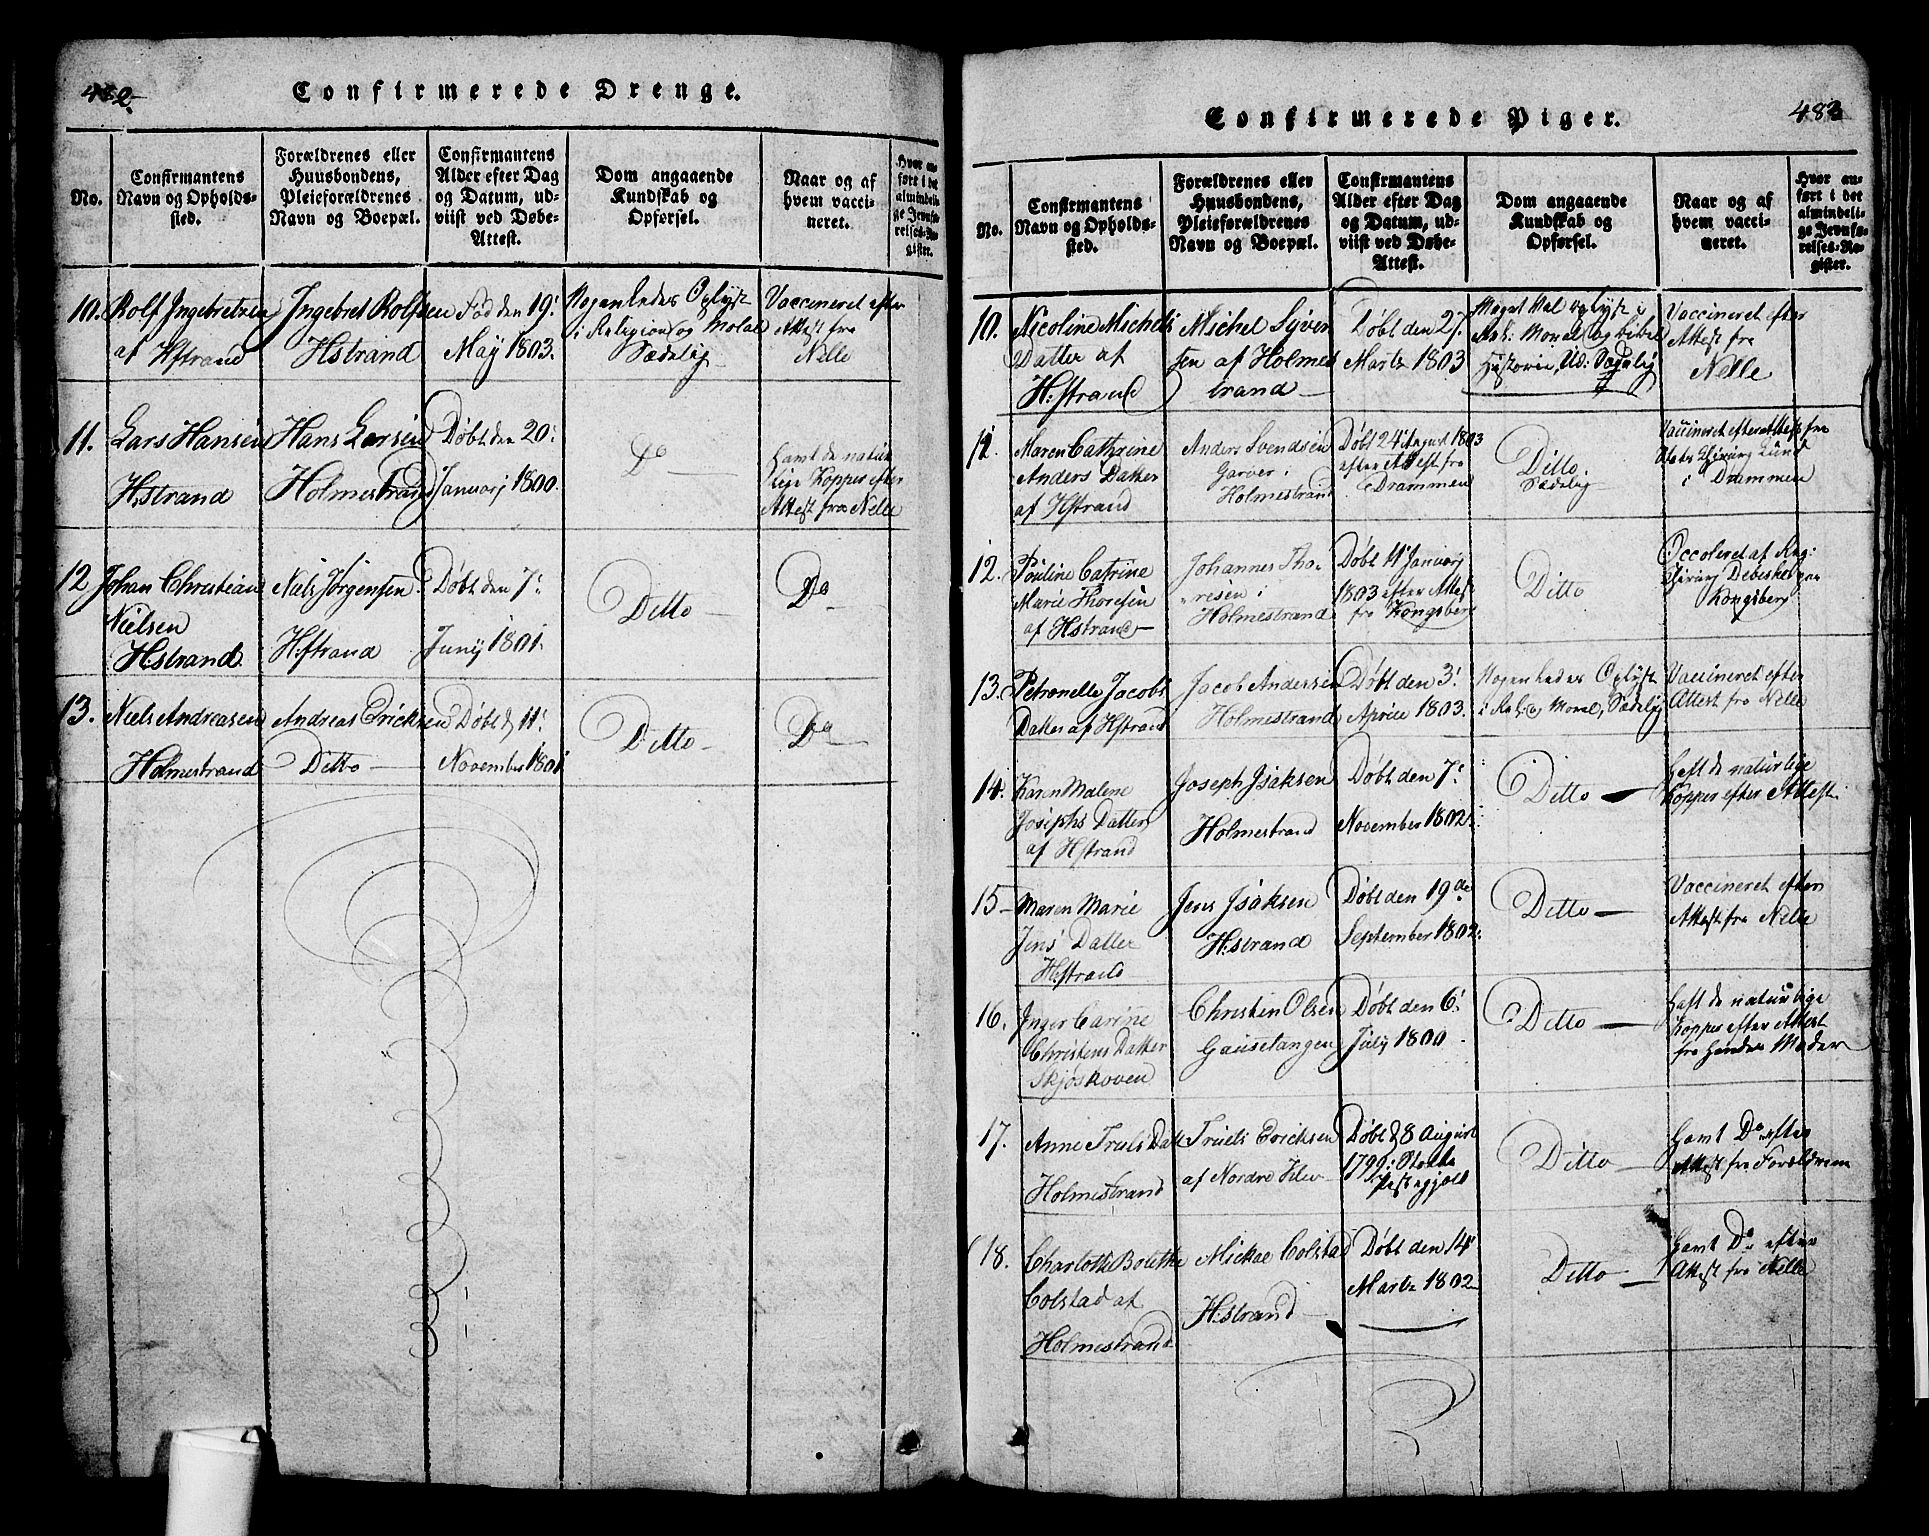 482
Confirmerede Drenge.
No.
Confirmantens
Navn og Opholds-
sted.
Forældrenes eller
Huusbondens,
Pleieforældrenes
Navn og Boepæl.
Confirmantens
Alder efter Dag
og Datum, ud-
viist ved Døbe-
Attest.
Dom angaaende
Kundskab og
Opførsel.
Naar og af
hvem vacci-
neret.
Hvor an-
ført i det
almindeli-
ge Jevnfø-
relses-Re-
gister.
10.
Rolf Ingebretzen
af Hstrand
Ingebret Rolfsen
Hstrand
Fød den 19.
May 1803.
Nogenledes Oplyst
i Religion og Moral
Sædelig
Vaccineret efter
Attest fra
Nelle
11.
Lars Hansen
H:strand
Hans Larsen
Holmestrand
Døbt den 20.
Januarj 1800.
Do
Havt de natur
lige Kopper efter
Attest fra Nelle
12
Johan Christian
Nielsen
H:strand
Niels Jørgensen
H:strand
Døbt den 7.
Junij 1801.
Ditto
Do
13.
Niels Andreasen
Holmestrand
Andreas Ericksen
Ditto
Døbt d. 11.
November 1801
Ditto
Do
483
Confirmerede Piger.
No.
Confirmantens
Navn og Opholds-
sted.
Forældrenes eller
Huusbondens,
Pleieforældrenes
Navn og Boepæl.
Confirmantens
Alder efter Dag
og Datum, ud-
viist ved Døbe-
Attest.
Dom angaaende
Kundskab og
Opførsel.
Naar og af
hvem vacci-
neret.
Hvor an-
ført i det
almindeli-
ge Jevnfø-
relses-Re-
gister.
10.
Nicoline Michels
Datter af
H:strand
Michel Syver
sen af Holme
strand
Døbt den 27.
Marts 1803
Meget Vel oplyst i
Rel: Moral og bibel
Historie, Ud: Sædelig
Vaccineret efter
Attest fra
Nelle
11.
Maren Cathrine
Anders Datter
af Hstrand
Anders Svendsen
Garver i
Holmestrand
Døbt 24 August 1803
efter Attest fra
Drammen
Ditto.
Sædelig
Vaccineret efter Attest fra
Chirurg Lund
i Drammen
12.
Pouline Catrine
Marie Thoresen
af Hstrand
Johannes Tho-
resen i
Holmestrand
Døbt 4 Januarj
1803 efter Attest
fra Kongsberg
Ditto
Occoleret af Reg:
Chirurg
Kongsberg
13.
Petronelle Jacobs
Datter af Hstrand
Jacob Andersen
Holmestrand
Døbt den 3.
Aprill 1803.
Nogenledes Oplyst
i Rel: og Moral, Sædelig
Vaccineret efter
Attest fra Nelle
14.
Karen Malene
Josephs Datter
af Hstrand
Joseph Isaksen
Holmestrand
Døbt den 7.
November 1802.
Ditto
Haft de naturlige
Kopper efter Attest
15
Maren Marie
Jens' Datter
H:strand
Jens Isaksen
H:strand
Døbt den 19de
September 1802.
Ditto
Vaccineret efter
Attest fra Nelle
16.
Inger Carine
Christens Datter
Skjøskoven
Christen Olsen
Gauselangen
Døbt den 6.
July 1800
Ditto
Haft de naturlige
Kopper efter Attest
fra hendes Moder
17.
Anne Truls Datt
Holmestrand
Truels Ericksen
af Nordre
Døbt d. 8 August
1799
Præstegjeld
Ditto
Havt Do efter
Attest fra Forældrene
18.
Charlotte Bolethe
Colstad af
Holmestrand
Mickae Colstad
H:strand
Døbt den 14
Marts 1802
Ditto
Havt Do efter
Attest fra Nelle